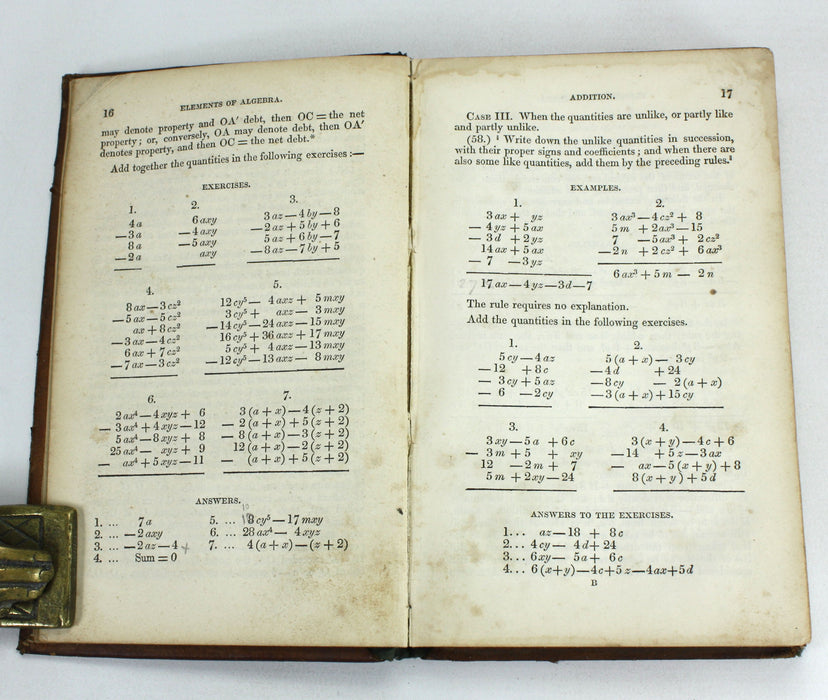 16 ELEMENTS OF ALGEBRA.
may denote property and OA′ debt, then OC = the net
property; or, conversely, OA may denote debt, then OA′
denotes property, and then OC = the net debt.*
Add together the quantities in the following exercises :—
EXERCISES.
1.
4a
— 3a
8a
— 2a
2.
6axy
— 4axy
— 5axy
axy
3.
3az — 4by — 8
— 2az + 5by + 6
5az + 6by — 7
— 8az — 7by + 5
4.
8ax — 3cz²
— 5ax — 5cz²
ax + 8cz²
— 3ax — 4cz²
6ax + 7cz²
— 7ax — 3cz²
5.
12cy⁵ — 4axz + 5mxy
3cy⁵ + axz — 3mxy
— 14cy⁵ — 24axz — 15mxy
16cy⁵ + 36axz + 17mxy
5cy⁵ + 4axz — 13mxy
— 12cy⁵ — 13axz — 8mxy
6.
2ax⁴ — 4xyz + 6
— 3ax⁴ + 4xyz — 12
5ax⁴ — 8xyz + 8
25ax⁴ — xyz + 9
— ax⁴ + 5xyz — 11
7.
3(a + x) — 4(z + 2)
— 2(a + x) + 5(z + 2)
— 8(a + x) — 3(z + 2)
12(a + x) — 2(z + 2)
— (a + x) + 5(z + 2)
ANSWERS.
1. ... 7a
2. ... — 2axy
3. ... — 2az — 4
4. ... Sum = 0
10
5. ... 8cy⁵ — 17mxy
6. ... 28ax⁴ — 4xyz
7. ... 4(a + x) — (z + 2)
ADDITION. 17
CASE III. When the quantities are unlike, or partly like
and partly unlike.
(58.) ¹ Write down the unlike quantities in succession,
with their proper signs and coefficients; and when there are
also some like quantities, add them by the preceding rules.²
EXAMPLES.
1.
3ax + yz
— 4yz + 5ax
— 3d + 2yz
14ax + 5ax
— 7 — 3yz
27
17ax — 4yz — 3d — 7
2.
3ax³ — 4cz² + 8
5m + 2ax³ — 15
7 — 5ax³ + 2cz²
— 2n + 2cz² + 6ax³
6ax³ + 5m — 2n
The rule requires no explanation.
Add the quantities in the following exercises.
1.
5cy — 4az
— 12 + 8c
— 3cy + 5az
— 6 — 2cy
2.
5(a + x) — 3cy
— 4d + 24
— 8cy — 2(a + x)
— 3(a + x) + 15cy
3.
3xy — 5a + 6c
— 3m + 5 + xy
12 — 2m + 7
5m + 2xy — 24
4.
3(x + y) — 4c + 6
— 14 + 5z — 3ax
— ax — 5(x + y) + 8
8(x + y) + 5d
ANSWERS TO THE EXERCISES.
1... az — 18 + 8c
2... 4cy — 4d + 24
3... 6xy — 5a + 6c
4... 6(x+y) — 4c + 5z — 4ax + 5d
B